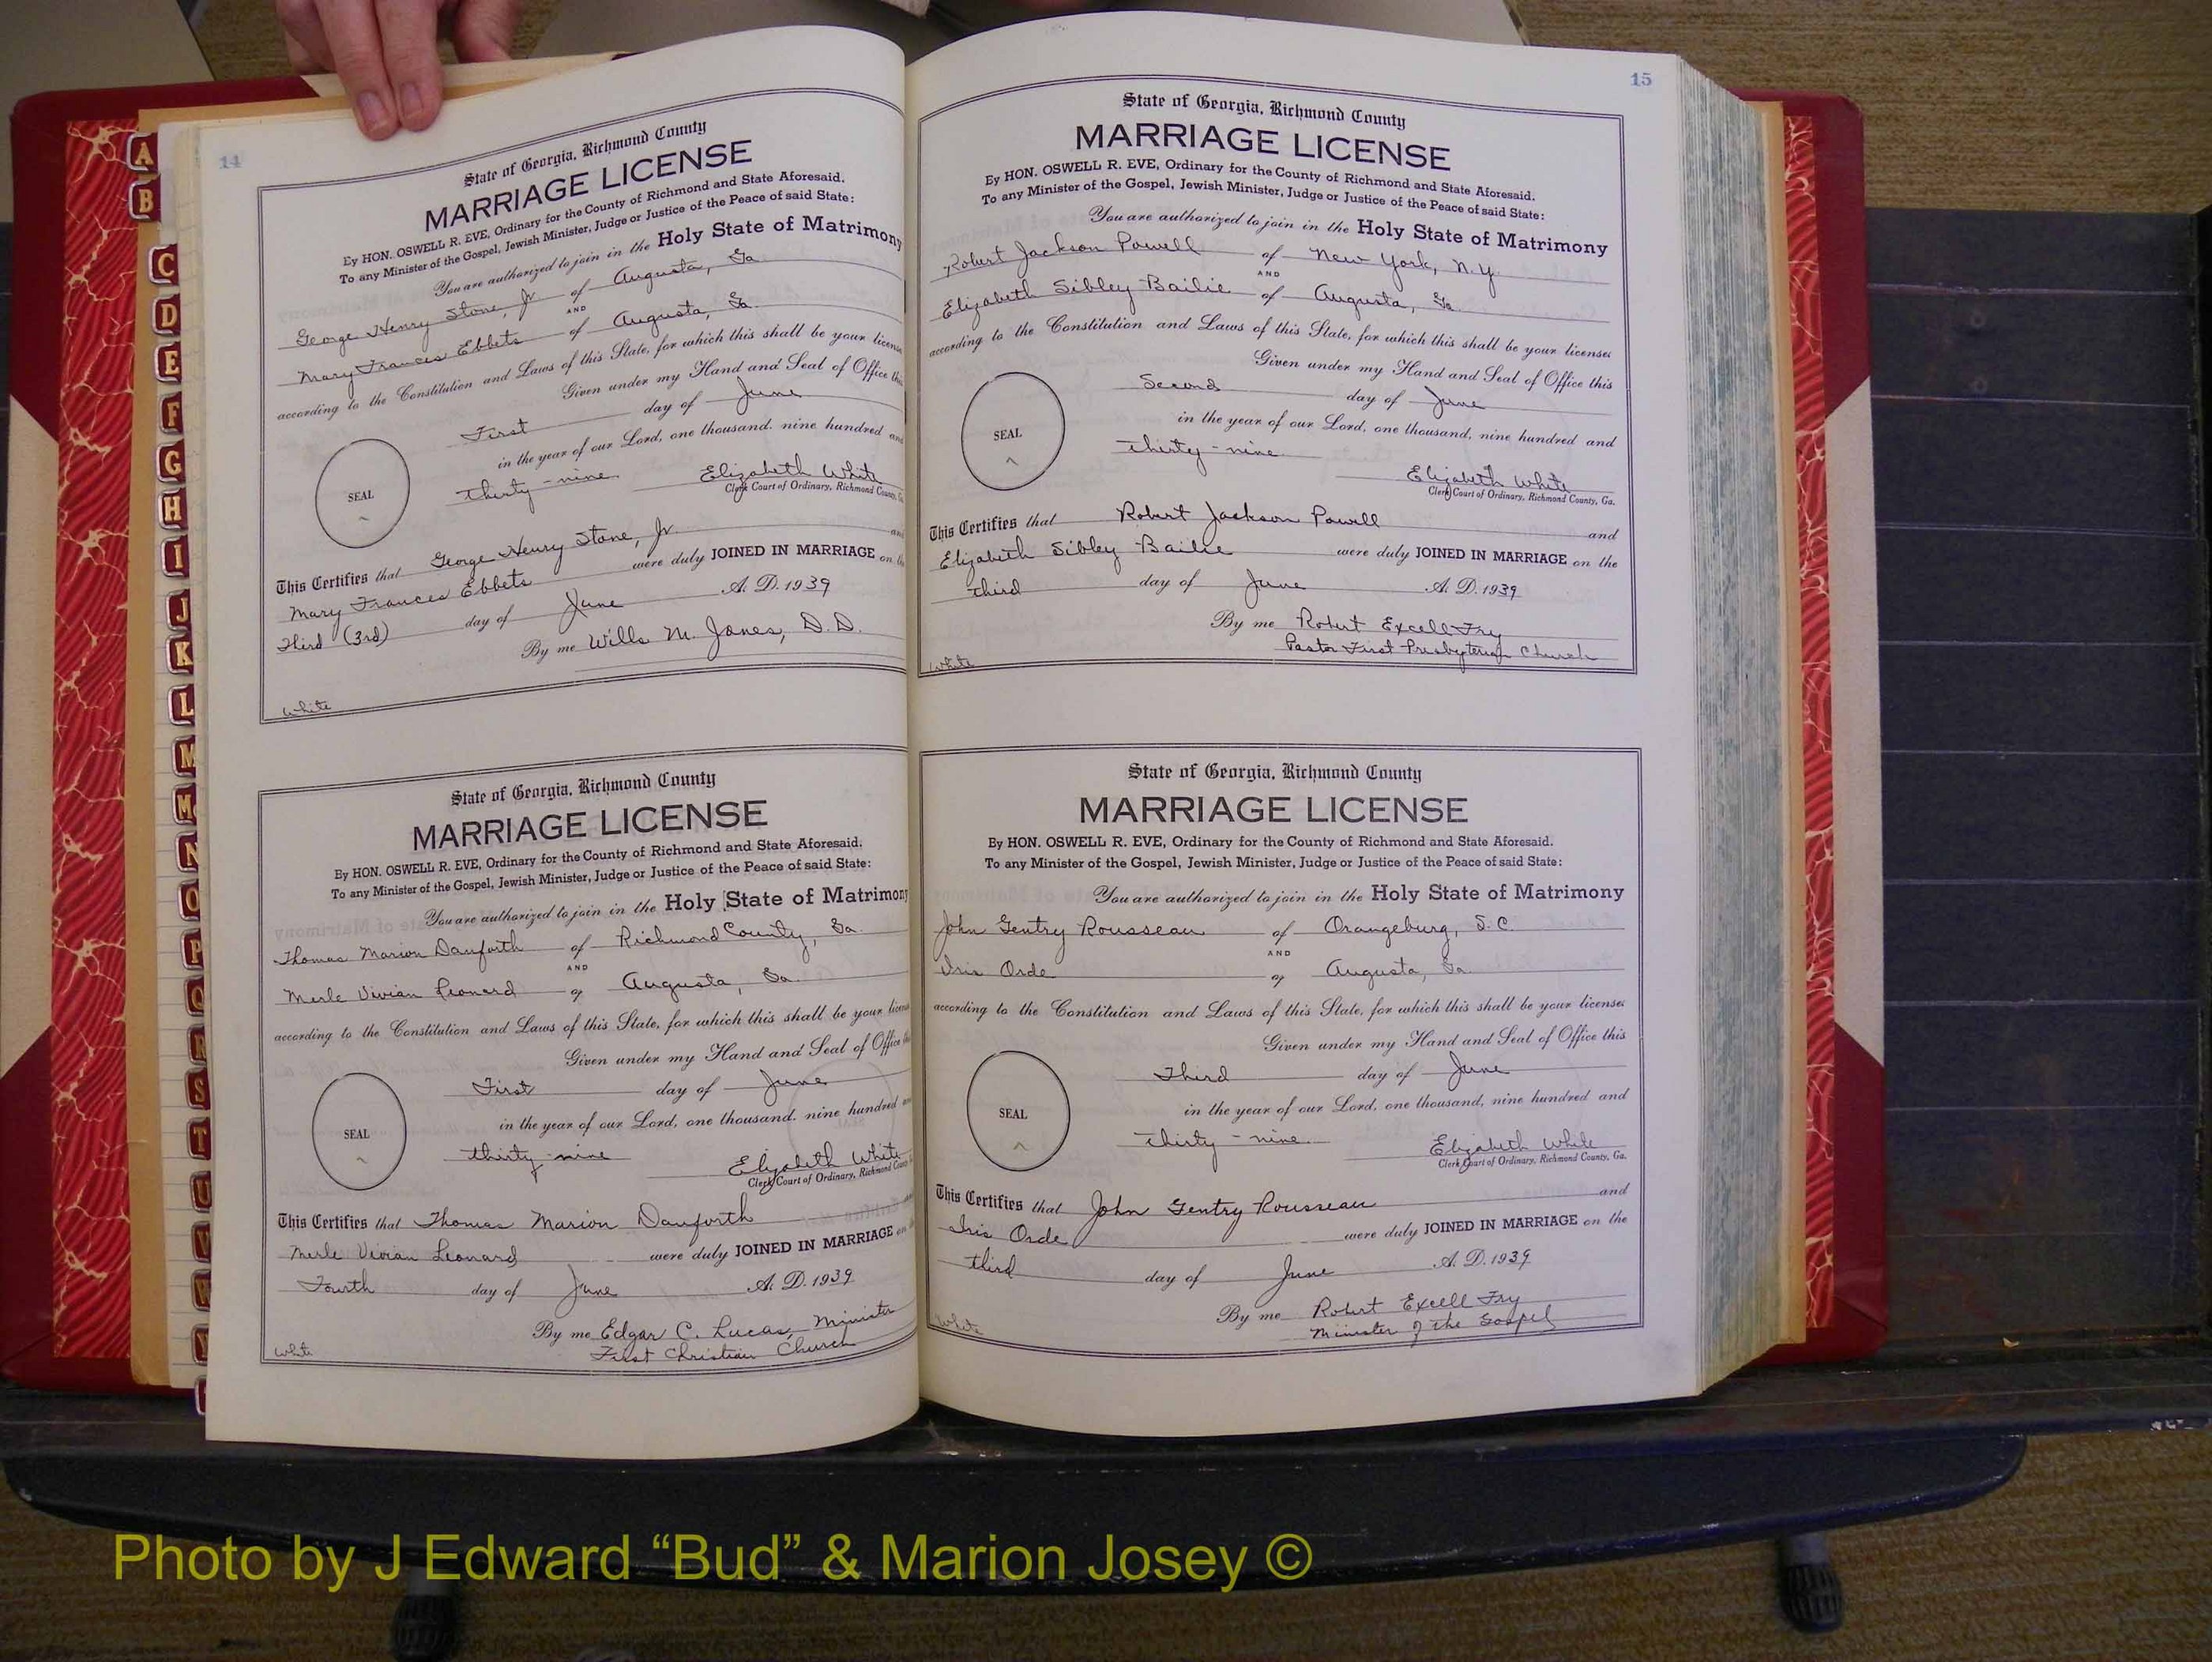 A
B
C
D
E
F
G
H
I
J
K
L
M
Mc
N
O
P
Q
R
S
T
U
V
W
Y
14
State of Georgia, Richmond County
MARRIAGE LICENSE
By HON. OSWELL R. EVE, Ordinary for the County of Richmond and State Aforesaid.
To any Minister of the Gospel, Jewish Minister, Judge or Justice of the Peace of said State:
You are authorized to join in the Holy State of Matrimony
George Henry Stone, Jr of Augusta, Ga.
AND
Mary Frances Ebbets of Augusta, Ga.
according to the Constitution and Laws of this State, for which this shall be your license
Given under my Hand and Seal of Office this
First day of June
in the year of our Lord, one thousand, nine hundred and
SEAL
thirty-nine. Elizabeth White
Clerk Court of Ordinary, Richmond County,
This Certifies that George Henry Stone, Jr. and
Mary Frances Ebbets were duly JOINED IN MARRIAGE on the
Third (3rd) day of June A. D. 1939
By me Wills M. Jones, D.D.
White
State of Georgia, Richmond County
MARRIAGE LICENSE
By HON. OSWELL R. EVE, Ordinary for the County of Richmond and State Aforesaid.
To any Minister of the Gospel, Jewish Minister, Judge or Justice of the Peace of said State:
You are authorized to join in the Holy State of Matrimony
Thomas Marion Danforth of Richmond County, Ga.
AND
Merle Vivian Leonard of Augusta, Ga.
according to the Constitution and Laws of this State, for which this shall be your license
Given under my Hand and Seal of Office
First day of June
in the year of our Lord, one thousand, nine hundred
SEAL
thirty-nine Elizabeth White
Clerk Court of Ordinary, Richmond County
This Certifies that Thomas Marion Danforth
Merle Vivian Leonard were duly JOINED IN MARRIAGE on
Fourth day of June A. D. 1939
By me Edgar C. Lucas, Minister
First Christian Church
White
15
State of Georgia, Richmond County
MARRIAGE LICENSE
By HON. OSWELL R. EVE, Ordinary for the County of Richmond and State Aforesaid.
To any Minister of the Gospel, Jewish Minister, Judge or Justice of the Peace of said State:
You are authorized to join in the Holy State of Matrimony
Robert Jackson Powell of New York, N.Y.
AND
Elizabeth Sibley Bailie of Augusta, Ga.
according to the Constitution and Laws of this State, for which this shall be your license:
Given under my Hand and Seal of Office this
Second day of June
in the year of our Lord, one thousand, nine hundred and
SEAL
thirty-nine. Elizabeth White
Clerk Court of Ordinary, Richmond County, Ga.
This Certifies that Robert Jackson Powell and
Elizabeth Sibley Bailie were duly JOINED IN MARRIAGE on the
third day of June A. D. 1939
By me Robert Excell Fry
Pastor First Presbyterian Church
White
State of Georgia, Richmond County
MARRIAGE LICENSE
By HON. OSWELL R. EVE, Ordinary for the County of Richmond and State Aforesaid.
To any Minister of the Gospel, Jewish Minister, Judge or Justice of the Peace of said State:
You are authorized to join in the Holy State of Matrimony
John Gentry Rousseau of Orangeburg, S.C.
AND
Iris Orde of Augusta, Ga.
according to the Constitution and Laws of this State, for which this shall be your license:
Given under my Hand and Seal of Office this
Third day of June
in the year of our Lord, one thousand, nine hundred and
SEAL
thirty-nine. Elizabeth White
Clerk Court of Ordinary, Richmond County, Ga.
This Certifies that John Gentry Rousseau and
Iris Orde were duly JOINED IN MARRIAGE on the
third day of June A. D. 1939
By me Robert Excell Fry
Minister of the Gospel
White
Photo by J Edward “Bud” & Marion Josey ©